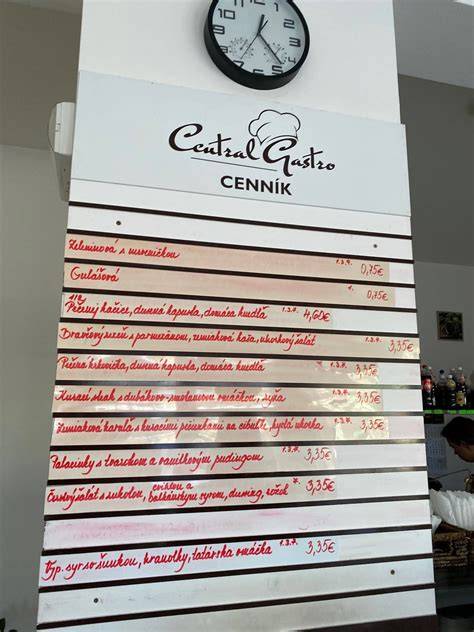 Central Gastro
CENNÍK
Zeleninová s mrveničkou 1.3.9. 0,75€
Gulášová 1. 0,75€
1/2 Pečenej kačice, dusená kapusta, domáca knedľa 1.3.7. 4,60€
Bravčový rezeň s parmezánom, zemiaková kaša, uhorkový šalát 1.3.7. 3,35€
Pečená krkovička, dusená kapusta, domáca knedľa 1.3.7. 3,35€
Kurací steak s dubákovo-smotanovou omáčkou, ryža 1.7. 3,35€
Zemiaková kaša s kuracími pečienkami na cibuľke, kyslá uhorka 3,35€
Palacinky s tvarohom a vanilkovým pudingom 3,35€
Čerstvý šalát s rukolou, cviklou a balkánskym syrom, dresing, rožok 3,35€
Vyp. syr so šunkou, hranolky, tatárska omáčka 1.3.7. 3,35€